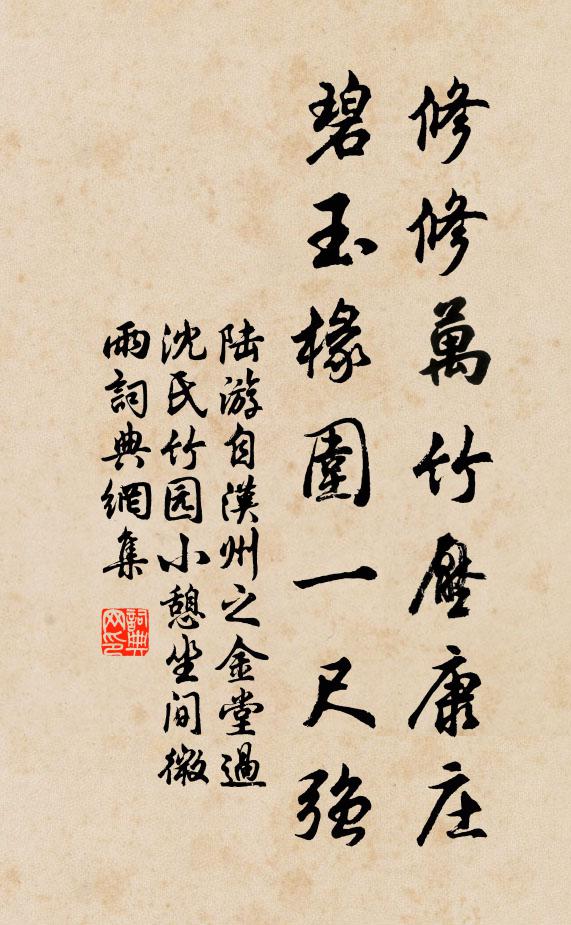 修修萬竹壓康庄
碧玉椽圍一尺強
陆游自漢州之金堂過
沈氏竹园小憩坐间微
雨詞典網集
詞典
网印